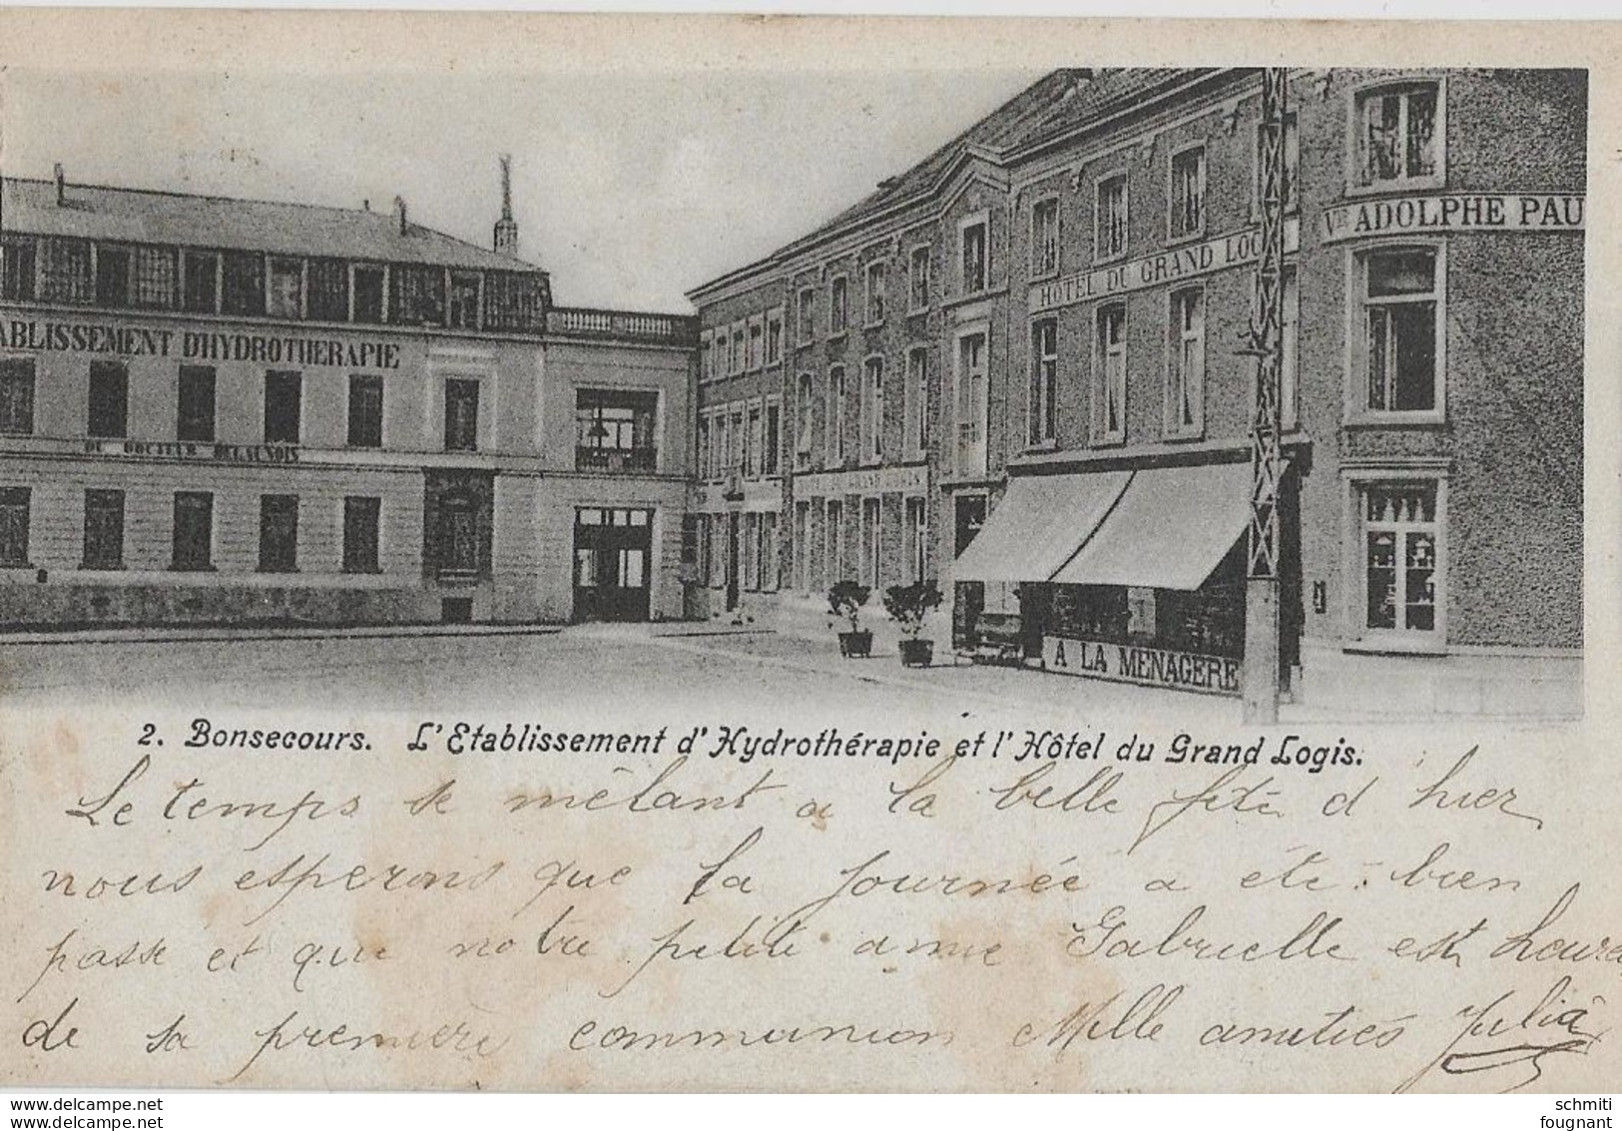 VVE ADOLPHE PAU
HOTEL DU GRAND LOGIS
ABLISSEMENT D'HYDROTHERAPIE
DU DOCTEUR DELAUNOIS
DU GRAND LOGIS
A LA MENAGERE
2. Bonsecours. L'Etablissement d'Hydrothérapie et l'Hôtel du Grand Logis.
Le temps se mêlant a la belle fête d hier
nous esperons que la journée a été bien
passe et que notre petite amie Gabrielle est heure
de sa première communion Mille amitiés Julia
schmiti
fougnant